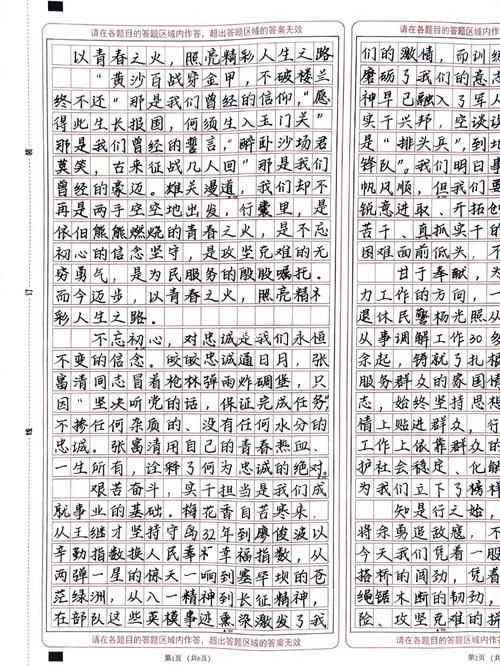 请在各题目的答题区域内作答，超出答题区域的答案无效
以青春之火，照亮精彩人生之路
“黄沙百战穿金甲，不破楼兰
终不还”那是我们曾经的信仰，“愿
得此生长报国，何须生入玉门关”
那是我们曾经的誓言，“醉卧沙场君
莫笑，古来征战几人回”那是我们
曾经的豪迈。难关漫道，我们却不
再是两手空空地出发，行囊里，是
依旧熊熊燃烧的青春之火，是不忘
初心的信念坚守，是攻坚克难的无
穷勇气，是为民服务的殷殷嘱托。
而今迈步，以青春之火，照亮精
彩人生之路。
不忘初心，对忠诚是我们永恒
不变的信念。皎皎忠诚通日月，张
富清同志冒着枪林弹雨炸碉堡，只
因“坚决听党的话，保证完成任务”，
不掺任何杂质的、没有任何水分的
忠诚。张富清用自己的青春热血、
一生所有，诠释了何为忠诚的绝对。
艰苦奋斗，实干担当是我们成
就事业的基础。梅花香自苦寒来，
从王继才坚持守岛32年到廖俊波以
辛勤指数换人民幸福指数，从
两弹一星的俯天一响到塞罕坝的苍
茫绿洲，从入一精神到长征精神，
在部队这些英模事迹熏染激发了我
请在各题目的答题区域内作答，超出答题区域的答案无效
第1页（共6页）
装
订
线
请在各题目的答题区域内
们的激情，而训练
磨砺了我们的意志
神早已融入了军人
实干兴邦，空谈误
是“排头兵”，到地
锋队”。我们明日事
帆风顺，但我们要
锐意进取、开拓创
苦干、真抓实干的
困难面前低头，不
甘于奉献，为
力工作的方向，一
退休民警杨光照从
从事调解工作30多
余起，铸就了扎根
服务群众的家国情
志，始终坚持思想
情上贴进群众，行
工作上依靠群众的
护社会稳定、化解
为我们立下了榜样
知是行之始，
将余勇追敌
今天我们凭着一股
搭桥的闯劲，凭
绳锯木断的韧劲，
险、攻坚克难的拼
请在各题目的答题区域内
第2页（共